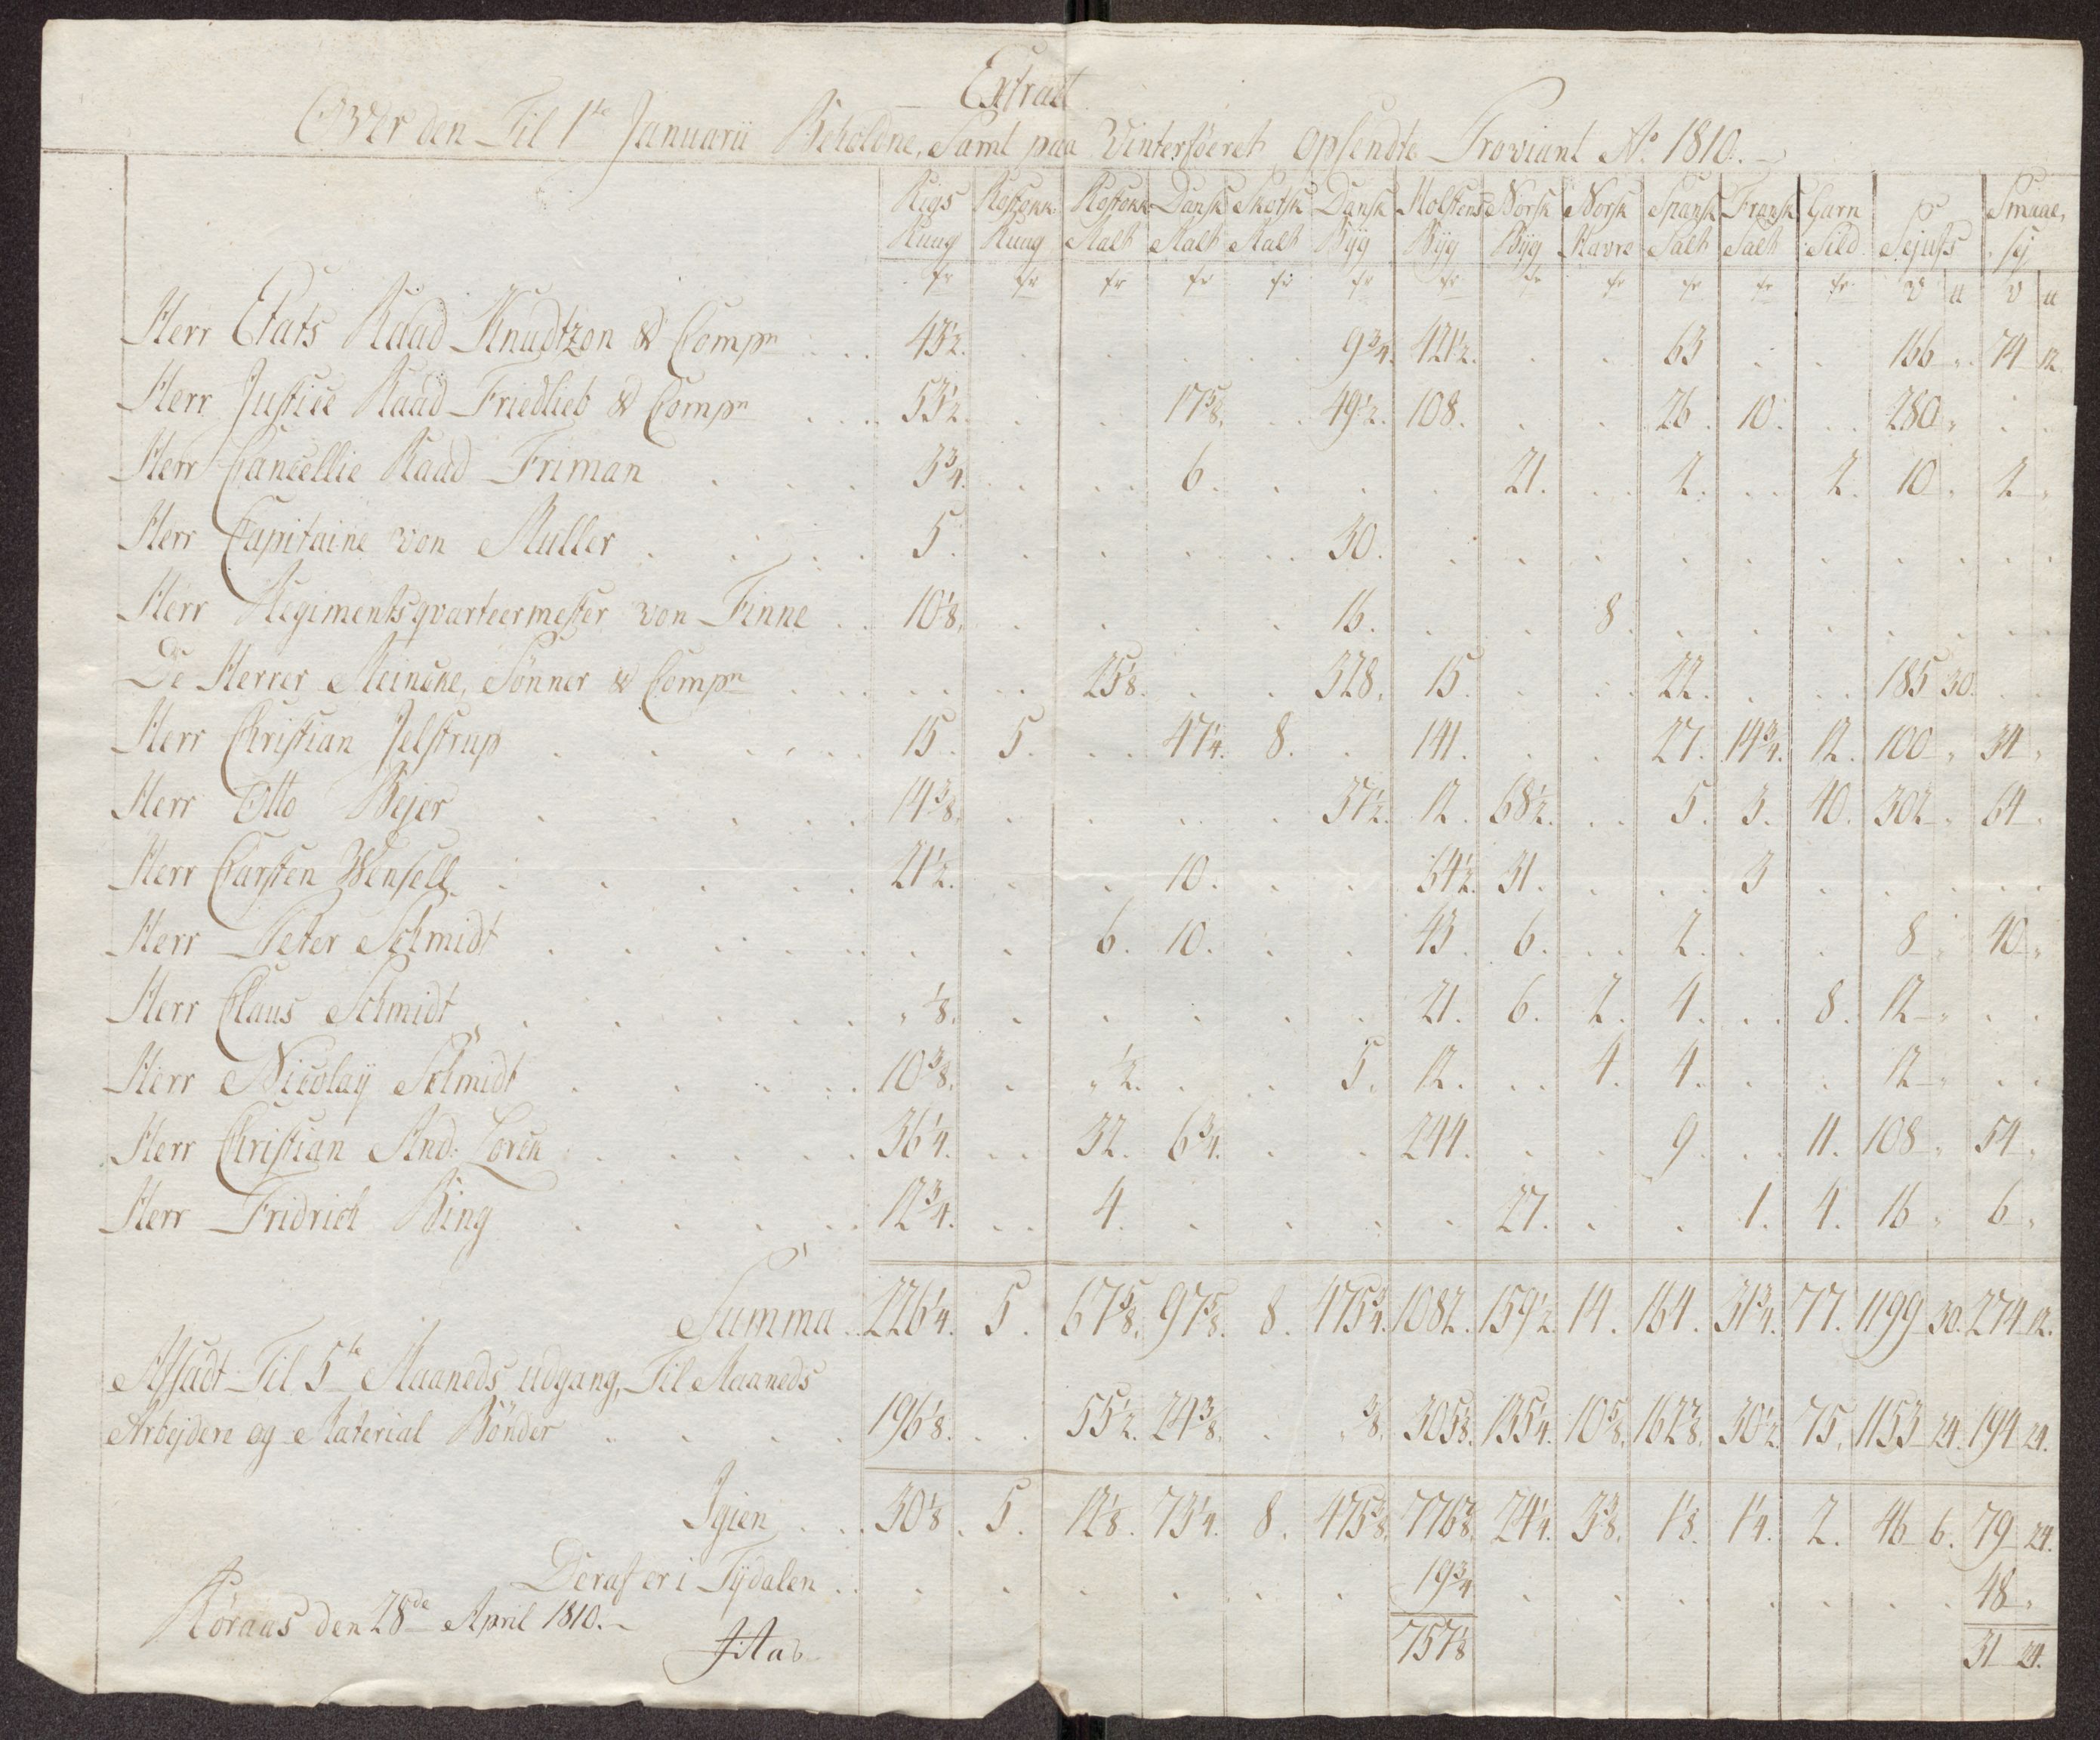 Extract
Over den Til 1te Januarii Beholdne, Samt paa Vinterføeret opsendte Proviant Ao 1810.
Rigs Rostokk Rostokk Dansk Skotsk Dansk Holstens Norsk Norsk Spansk Fransk Garn Smaae,
Ruug Ruug Malt Malt Malt Byg Byg Byg Havre Salt Salt Sild Sejufs sej
Herr Etats Raad Knudtzon & Compn 43 1/2. 9 3/4. 421 1/2. 63 166 „ 74 12.
Herr Justice Raad Friedlieb & Compn 53 1/2. 17 5/8. 49 1/2. 108. 26. 10. 280 „
Herr Cancellie Raad Friman 3 3/4. 6. 21. 2. 2. 10 „ 2 „
Herr Capitaine von Muller 5. 30.
Herr Regimentsqvarteermester von Finne 10 1/8. 16. 8.
De Herrer Meincke, Sønner & Compn 25 1/8. 328. 15. 22. 185 30.
Herr Christian Jelstrup 15. 5. 47 1/4. 8. 141. 27. 14 3/4. 12. 100 „ 34 „
Herr Otto Bejer 14 3/8. 37 1/2. 12. 68 1/2. 5. 3. 40. 302 „ 64 „
Herr Carsten Wensell 21 1/2. 10. 34 1/2. 31. 3
Herr Peter Schmidt 6. 10. 43. 6. 2. 8 „ 40 „
Herr Claus Schmidt „ 1/8. 21. 6. 2. 4. 8. 12 „
Herr Nicolaÿ Schmidt 10 3/8. „ 1/2. 5. 12. 4. 4. 12 „
Herr Christian And: Lorck 36 1/4. 32. 6 3/4. 244. 9. 11. 108 „ 54 „
Herr Fridrich Bing 12 3/4. 4. 27. 1. 4. 16 „ 6 „
Summa 226 1/4. 5. 67 5/8. 97 5/8. 8. 475 3/4. 1082. 159 1/2. 14. 164. 31 3/4. 77. 1199 30. 274 12.
Afsadt Til 5te Maaneds udgang, Til Maaneds
Arbejdere og Material Bönder 196 1/8. 55 1/2. 24 3/8. „ 3/8. 305 1/8. 135 1/4. 10 5/8. 162 7/8. 30 1/2. 75. 1153 24. 194 24.
Igien 30 1/8. 5. 12 1/8. 73 1/4. 8. 475 3/8. 776 7/8. 24 1/4. 3 3/8. 1 1/8. 1 1/4. 2. 46 6. 79 24.
Deraf er i Tÿdalen 19 3/4 48 „
Röraas den 28de April 1810.
757 1/8 31 24.